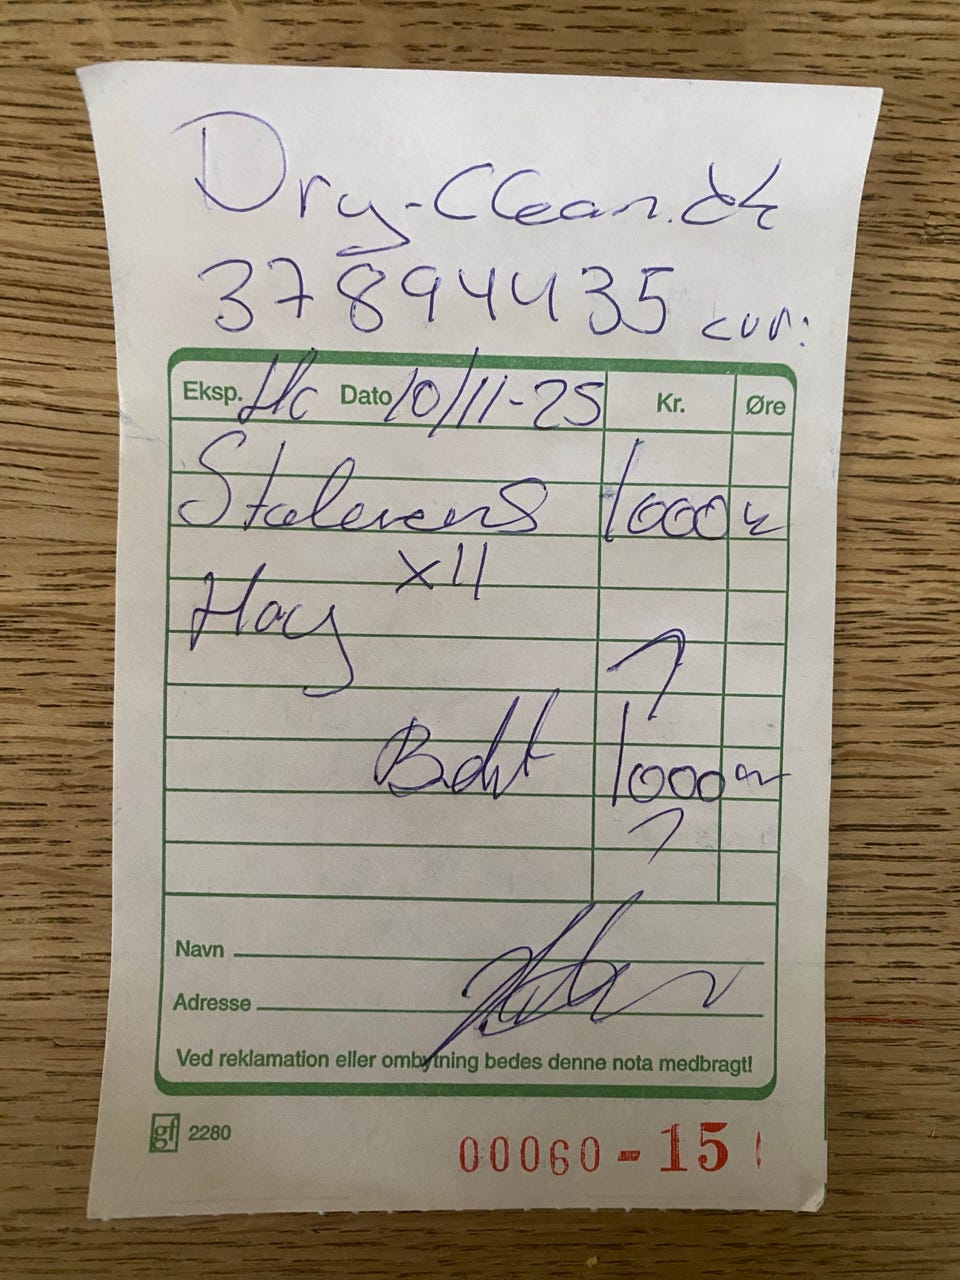 Dry-Clean.dk
37894435 cvr:
Eksp. Hc Dato 10/11-25 Kr. Øre
Stolerens 1000 kr
x11
Hay
Betalt 1000 kr
Navn
Adresse
Ved reklamation eller ombytning bedes denne nota medbragt!
gf 2280
00060-15